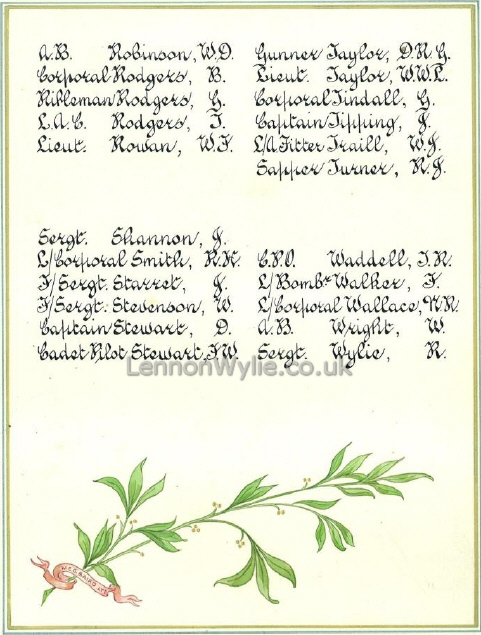 A.B. Robinson, W.D.
Corporal Rodgers, B.
Rifleman Rodgers, G.
L.A.C. Rodgers, T.
Lieut. Rowan, W.F.
Gunner Taylor, D.R.G.
Lieut. Taylor, W.W.L.
Corporal Tindall, G.
Captain Tipping, J.
L/A Fitter Traill, W.J.
Sapper Turner, R.J.
Sergt. Shannon, J.
L/Corporal Smith, R.H.
F/Sergt. Starret, J.
F/Sergt. Stevenson, W.
Captain Stewart, D.
Cadet Pilot Stewart, F.W.
C.P.O. Waddell, J.R.
L/Bombr Walker, F.
L/Corporal Wallace, W.R.
A.B. Wright, W.
Sergt. Wylie, R.
LennonWylie.co.uk